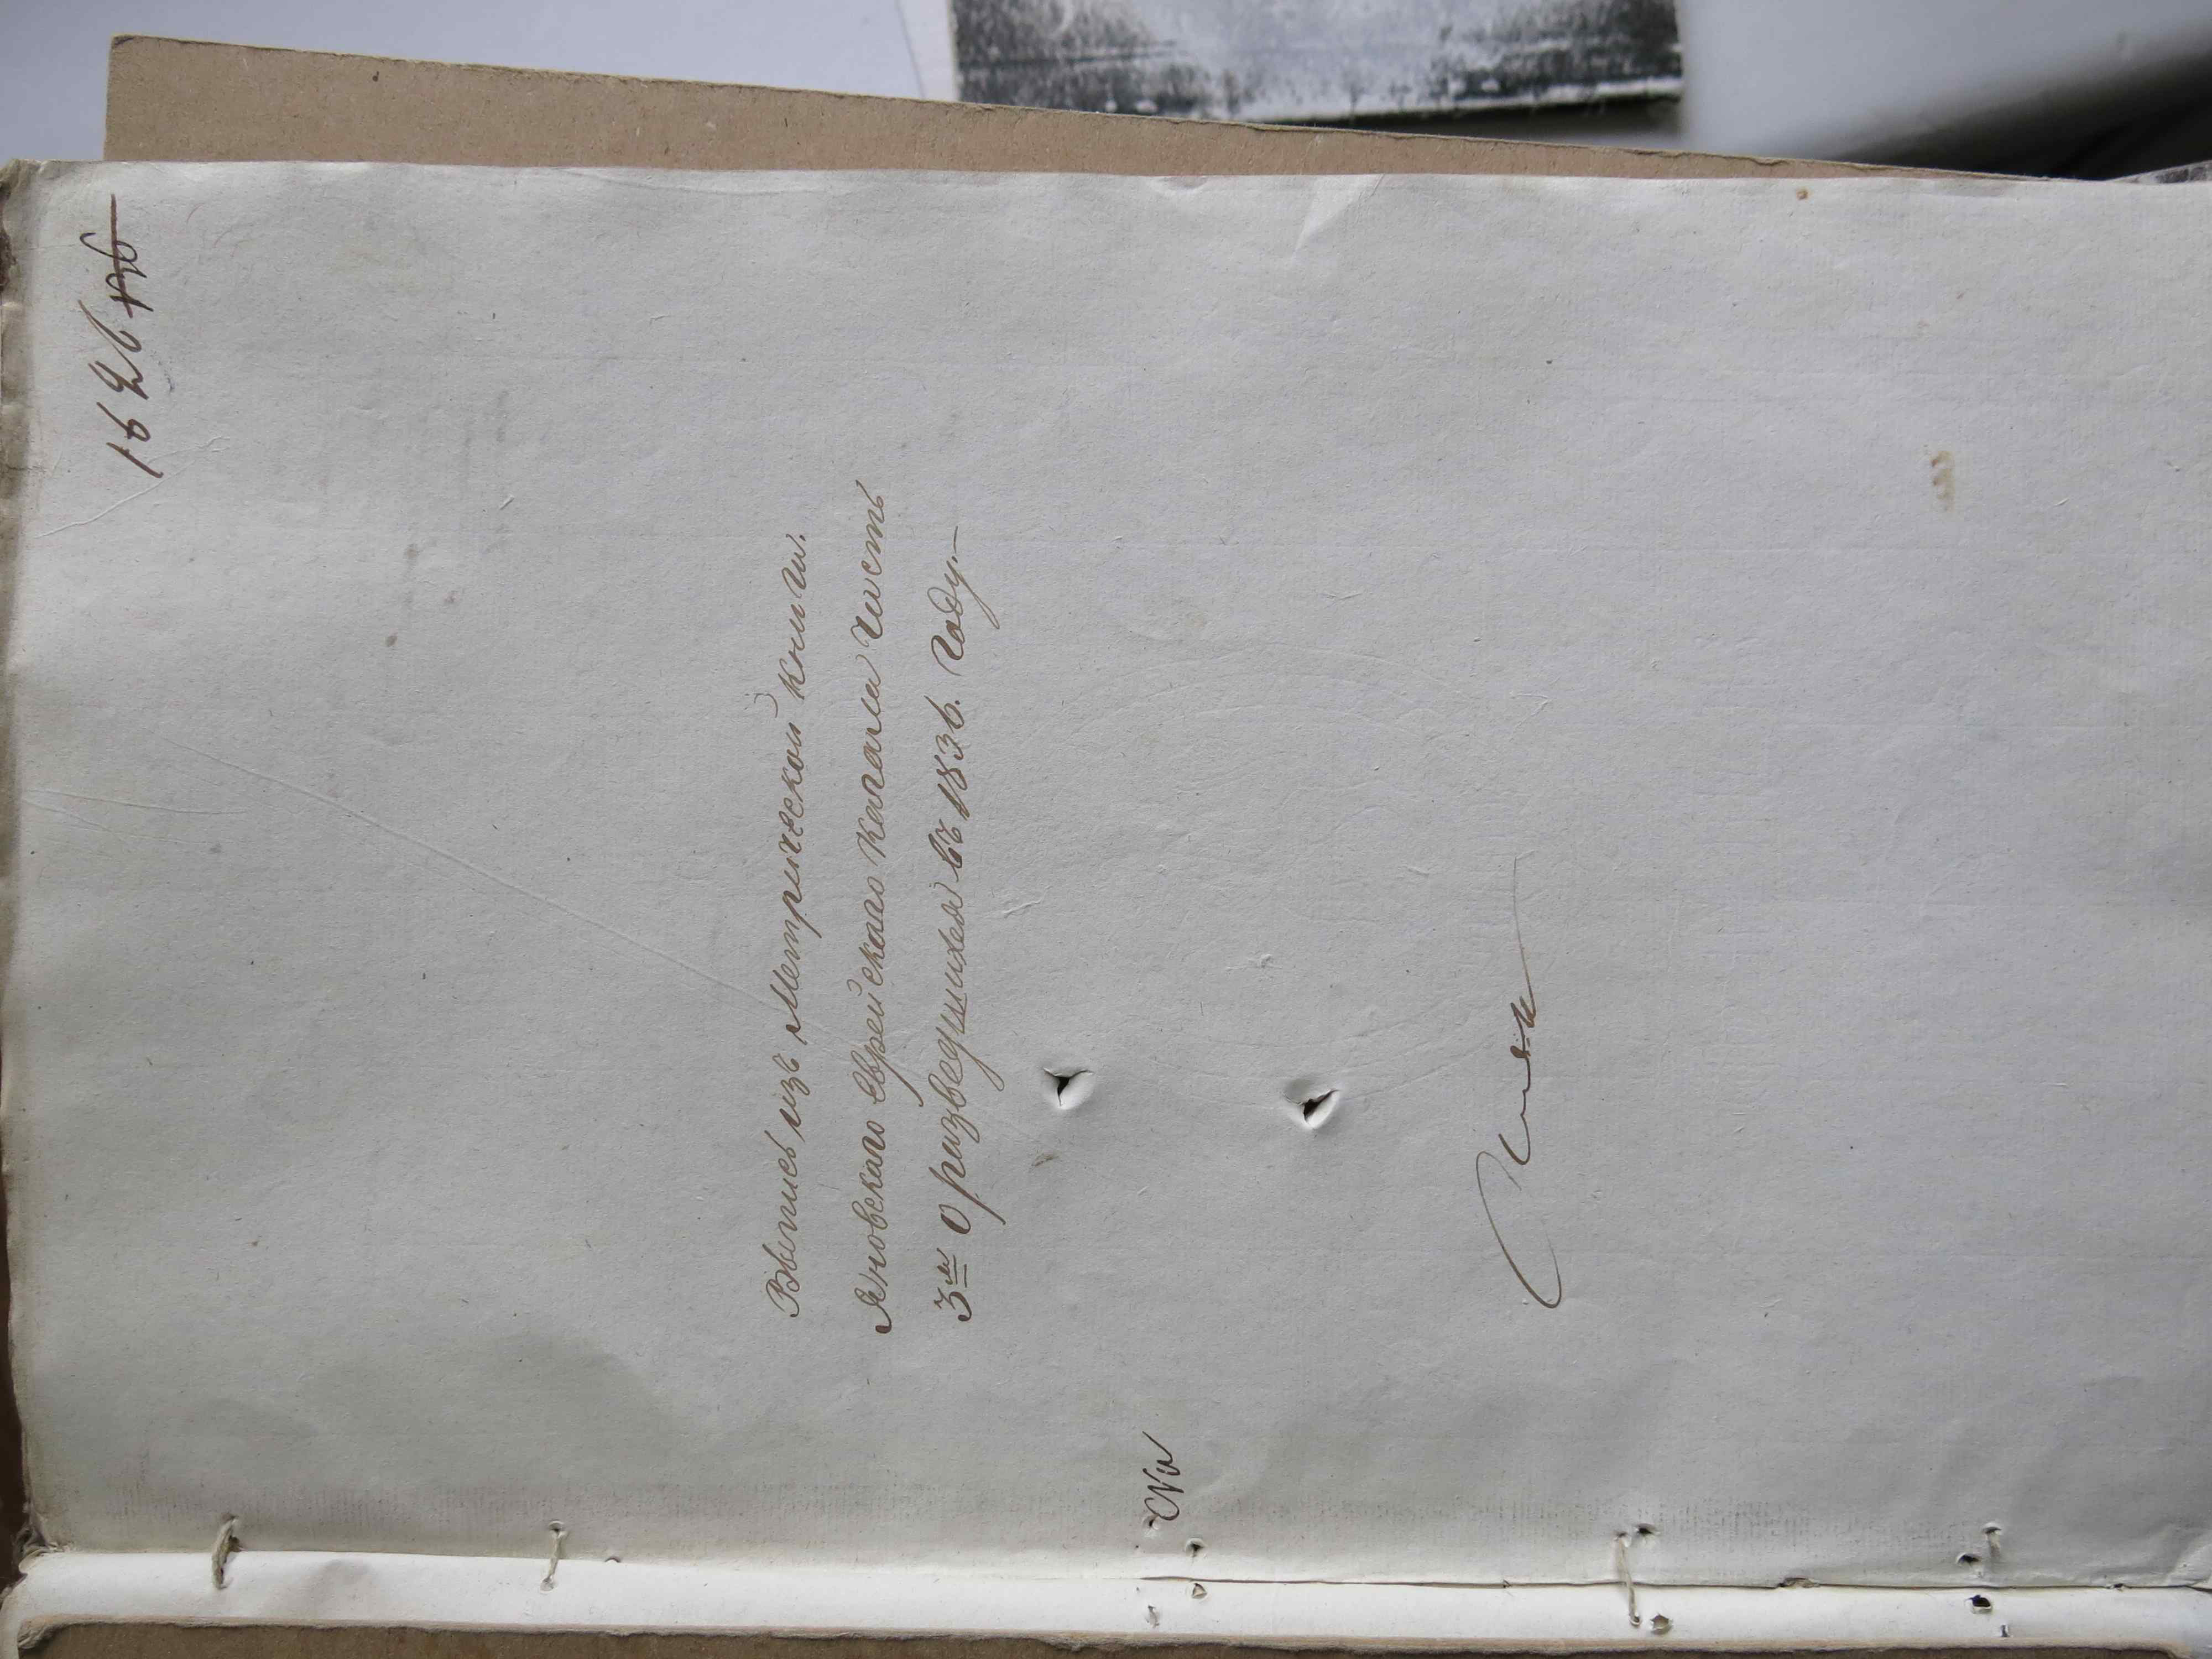 1626
Выпись изъ Метрической книги.
Яновскаго Еврейскаго Кагала Часть
3я О разведшихся въ 1836. Году.